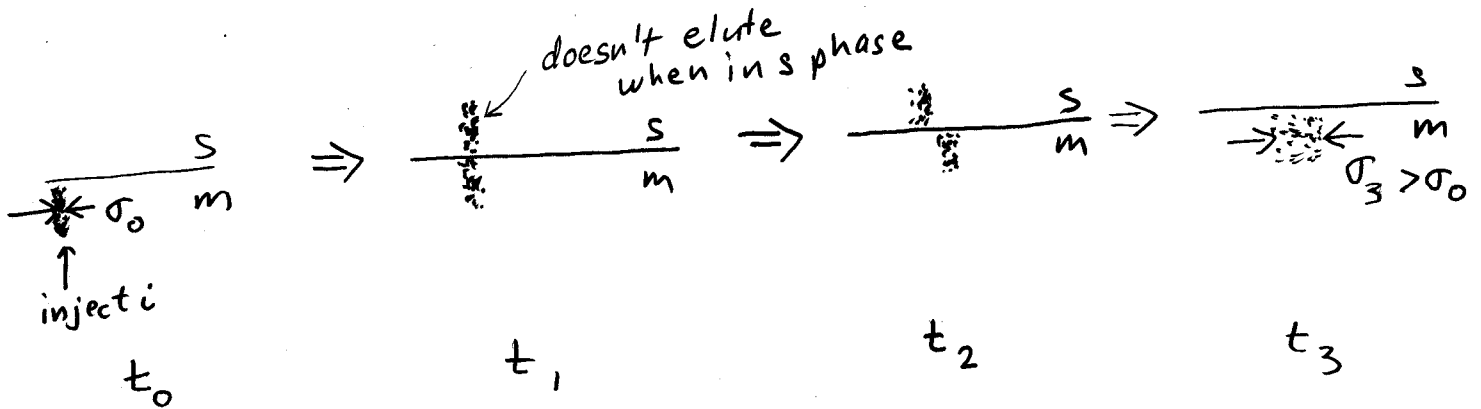 doesn't elute
when in s phase
s
m
σ₀
inject i
t₀
⇒
s
m
t₁
⇒
s
m
t₂
⇒
s
m
σ₃ > σ₀
t₃